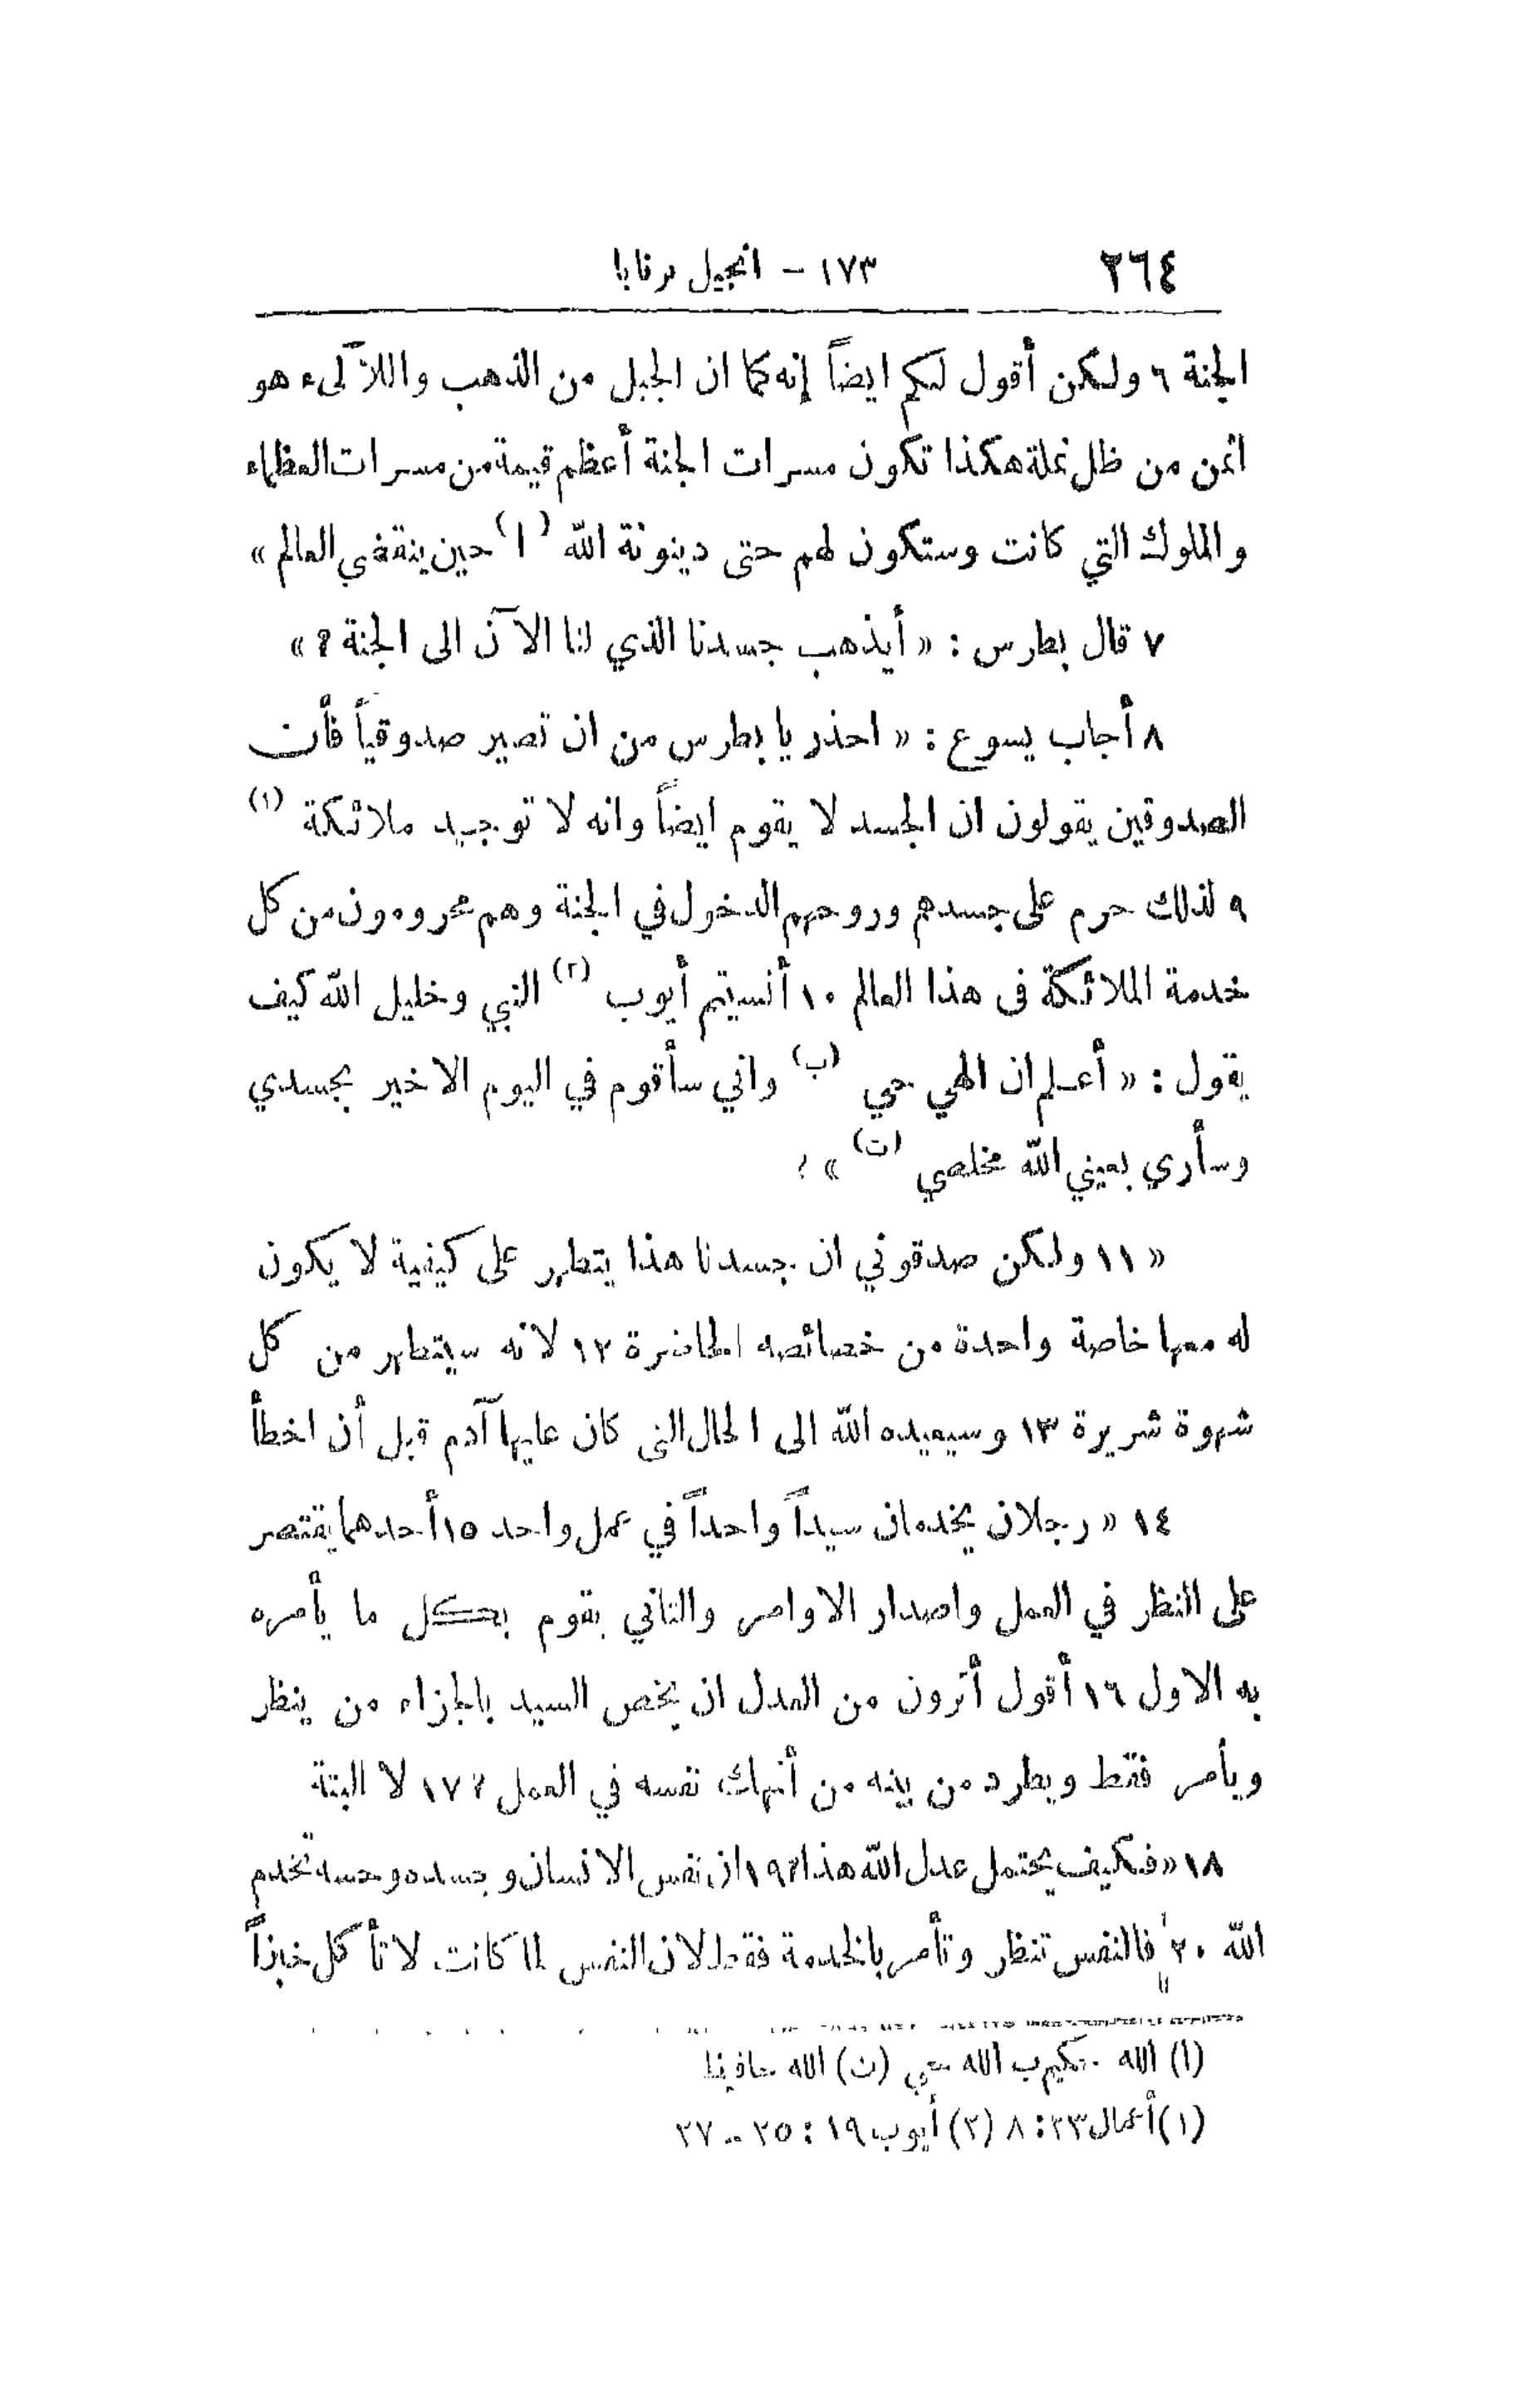 ٢٦٤ ١٧٣ – انجيل برنابا
الجنة ٦ ولكن أقول لكم ايضاً إنه كما ان الجبل من الذهب واللآلىء هو
اثمن من ظل نملة هكذا تكون مسرات الجنة أعظم قيمة من مسرات العظماء
والملوك التي كانت وستكون لهم حتى دينونة الله (ا) حين ينقضي العالم »
٧ قال بطرس : « أيذهب جسدنا الذي لنا الآن الى الجنة ? »
٨ أجاب يسوع : « احذر يا بطرس من ان تصير صدوقياً فأن
الصدوقين يقولون ان الجسد لا يقوم ايضاً وانه لا توجد ملائكة (١)
٩ لذلك حرم على جسدهم وروحهم الدخول في الجنة وهم محرومون من كل
خدمة الملائكة فى هذا العالم ١٠ أنسيتم أيوب (٢) النبي وخليل الله كيف
يقول : « أعلم ان الهي حي (ب) واني سأقوم في اليوم الاخير بجسدي
وسأرى بعيني الله مخلصي (ت) » ؟
« ١١ ولكن صدقوني ان جسدنا هذا يتطهر على كيفية لا يكون
له معها خاصة واحدة من خصائصه الحاضرة ١٢ لانه سيتطهر من كل
شهوة شريرة ١٣ وسيعيده الله الى الحال التى كان عليها آدم قبل أن اخطأ
١٤ « رجلان يخدمان سيداً واحداً في عمل واحد ١٥ أحدهما يقتصر
على النظر في العمل واصدار الاوامر والثاني يقوم بكل ما يأمره
به الاول ١٦ أقول أترون من العدل ان يخص السيد بالجزاء من ينظر
ويأمر فقط ويطرد من بيته من أنهك نفسه في العمل ? ١٧ لا البتة
١٨ « فكيف يحتمل عدل الله هذا ? ١٩ ان نفس الانسان وجسده وحسه تخدم
الله ٢٠ فالنفس تنظر وتأمر بالخدمة فقط لان النفس لما كانت لا تأكل خبزاً
(ا) الله حكيم ب الله حي (ت) الله حافيظ
(١) أعمال ٢٣ : ٨ (٢) أيوب ١٩ : ٢٥ – ٢٧